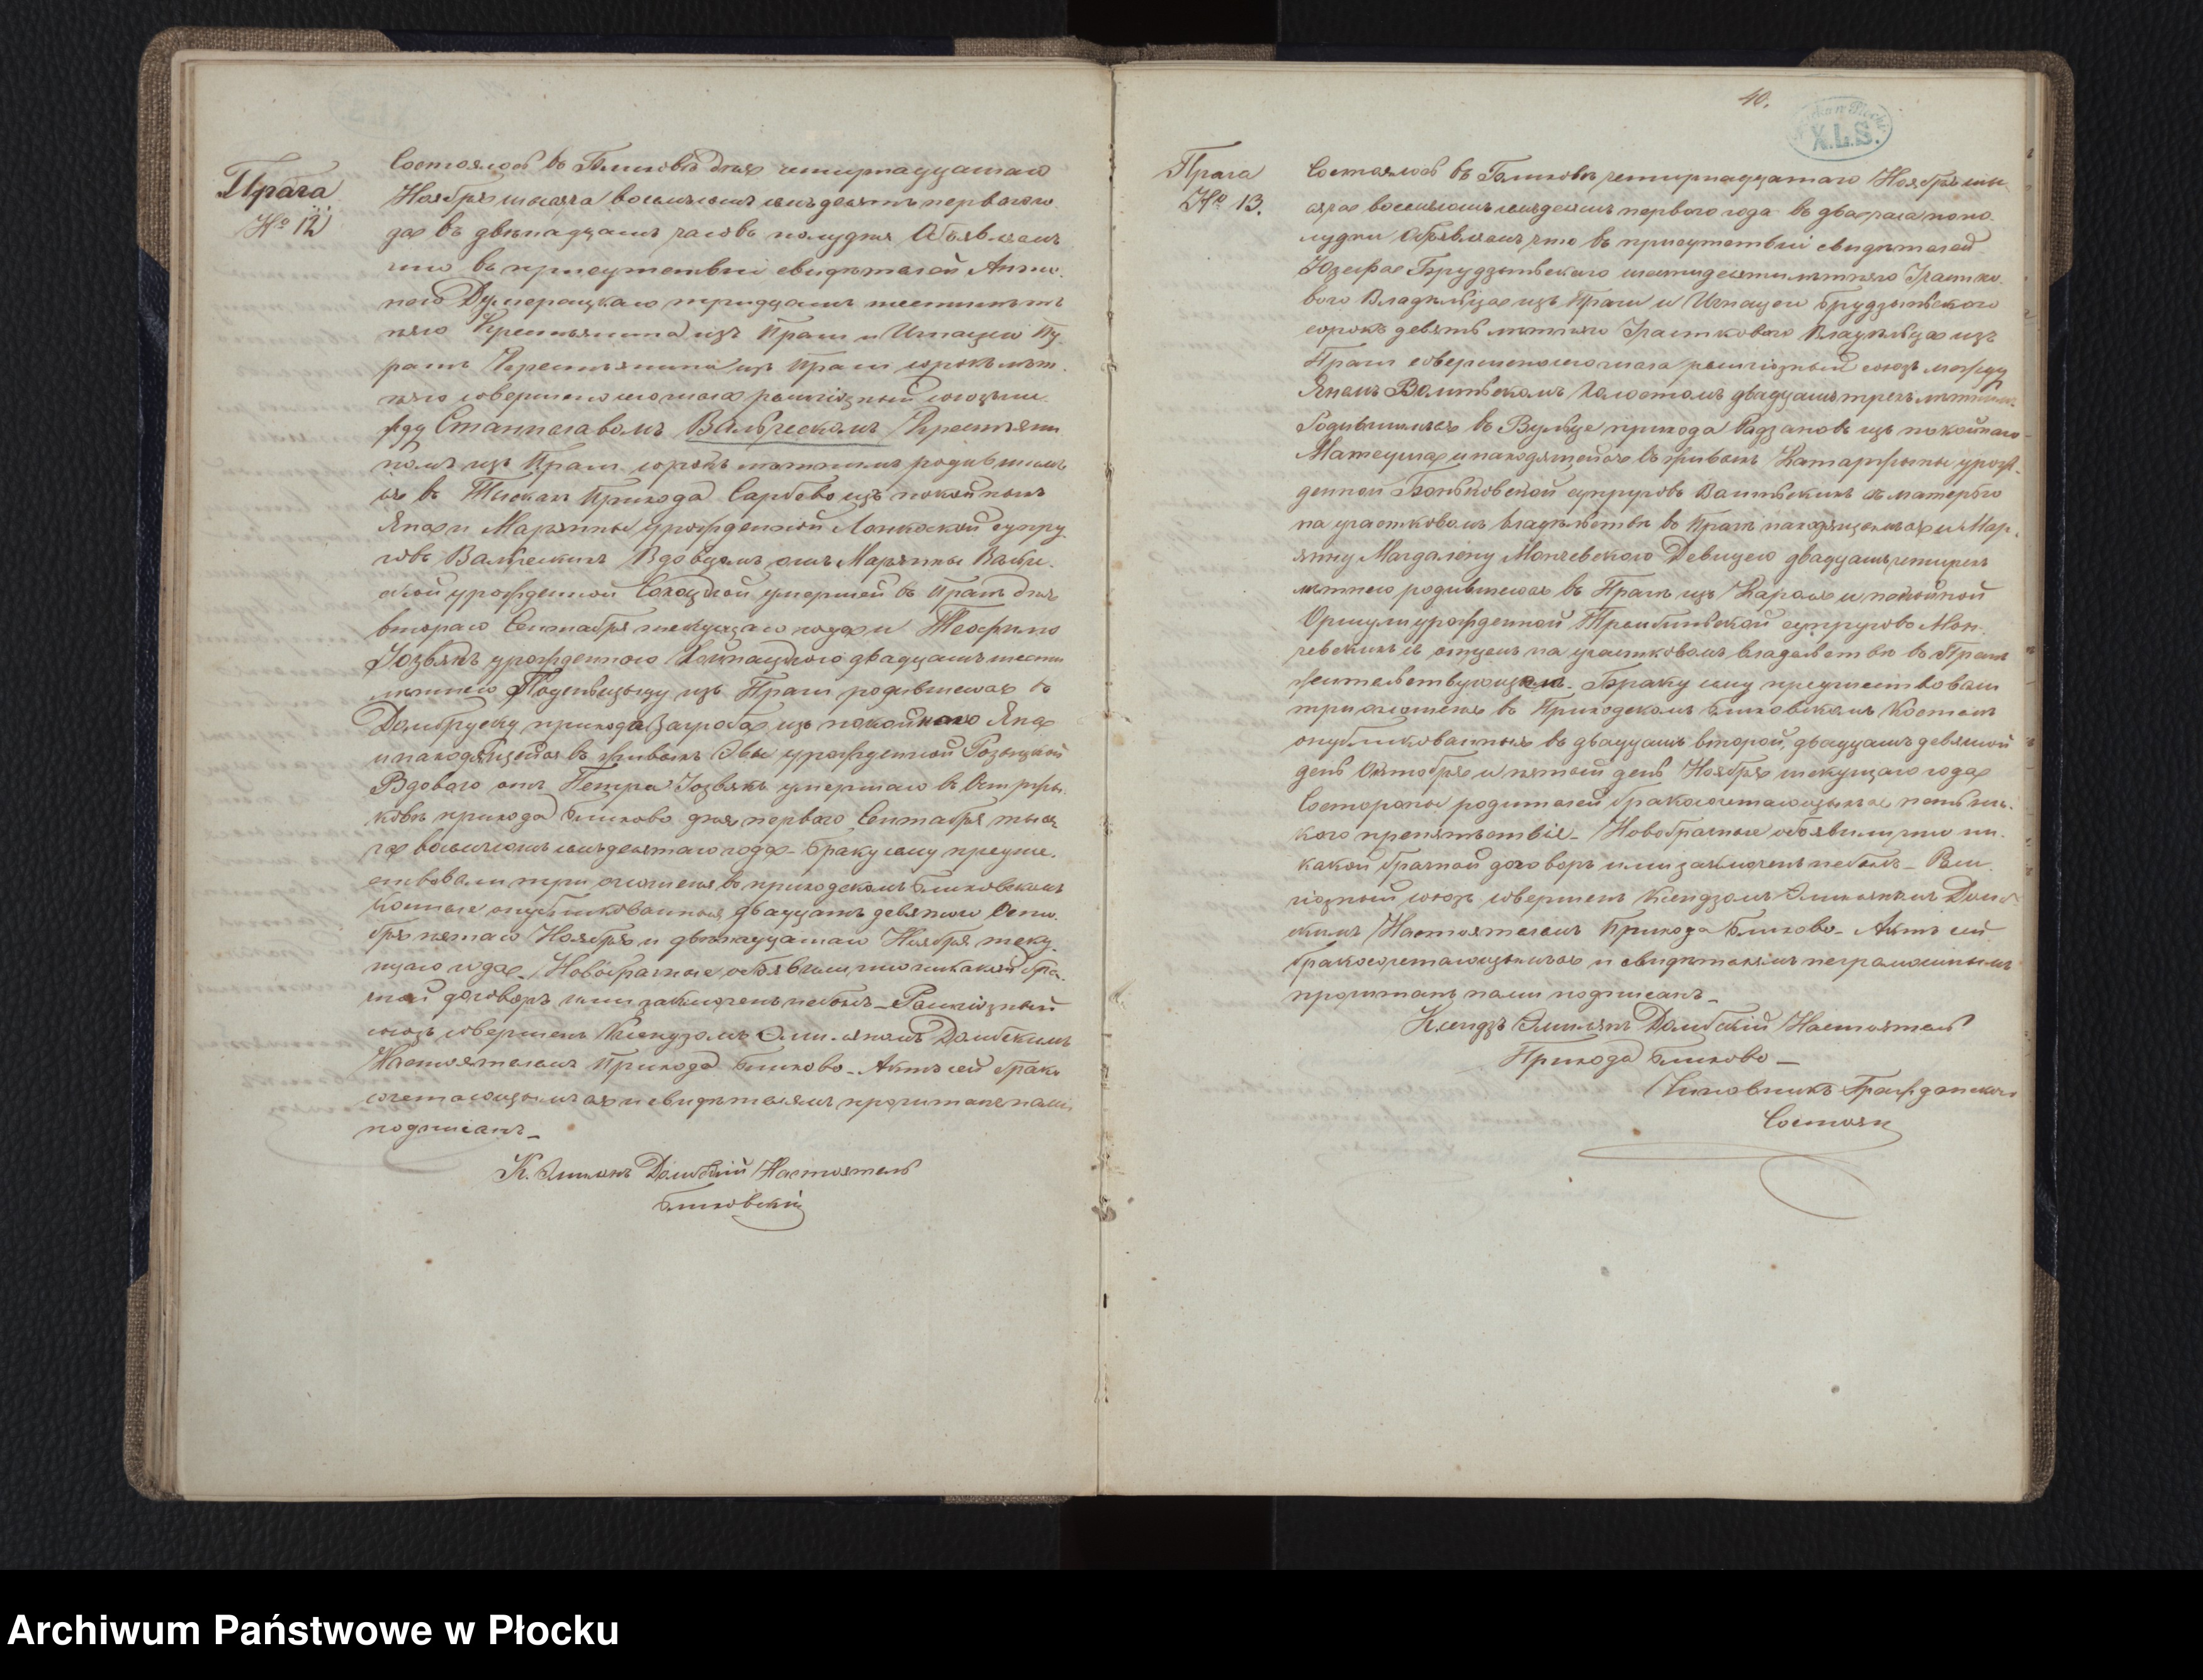 Прага
№ 12
Состоялось въ Блиховѣ дня четирнадцатаго
Ноября мѣсяца восемьсотъ семьдесятъ первого го
да въ двѣнадцать часовъ полудня Объявляемъ
что въ присутствіи свидѣтелей Анто
него тридцать шестилѣт
няго Крестьянина изъ Праги и Игнацего
Крестьянина изъ Праги сорокъ лѣт
няго совершено сего числа религіозный союзъ ме
жду Станиславомъ Вальческомъ Крестяни
номъ изъ Праги сорокъ лѣтнимъ родившим
ся въ прихода Сарбево изъ покойныхъ
Яна и Маріянны урожденной супру
говъ Вальческихъ Вдовцомъ отъ Маріянны Вальче
ской урожденной умершей въ Прагѣ дня
втораго Сентября текущаго года и Теофилю
Юзвякъ урожденною двадцать шести
лѣтнею изъ Праги родившеюся въ
прихода Загроба изъ покойнаго Яна
и находящейся въ живыхъ Эвы урожденной
Вдовою отъ Петра Юзвякъ умершаго въ
ковѣ прихода Блихово дня первого Сентября тыся
ча восемьсотъ семьдесятаго года – Браку сему предше
ствовали три оглашенія въ приходскомъ Блиховскомъ
Костеле опубликованныя двадцать девятого Октя
бря пятаго Ноября и двѣнадцатаго Ноября теку
щаго года. Новобрачные объявили, что никакой бра
чный договоръ ими заключенъ небылъ – Религіозный
союзъ совершенъ Ксендзомъ Эмиліяномъ Домбскимъ
Настоятелемъ Прихода Блихово – Актъ сей брако
сочетающымся и свидѣтелямъ прочитанъ нами
подписанъ –
К. Эмиліянъ Домбскій Настоятель
Блиховскій
40.
X.L.S.
Прага
№ 13.
Состоялось въ Блиховѣ четирнадцатаго Ноября мѣ
сяца восемьсотъ семьдесятъ первого года въ два часа попо
лудни Объявляемъ что въ присутствіи свидѣтелей
Юзефа Брудзыньского шестидесятилѣтняго Участко
вого Владѣльца изъ Праги и Игнацего Брудзыньского
сорокъ девять лѣтняго Участкового Владѣльца изъ
Праги совершено сего числа религіозный союзъ между
Яномъ Холостомъ двадцать трехъ лѣтним
Родившимся въ Вульце прихода Радзановъ изъ покойнаго
Матеуша и находящейся въ живыхъ Катаржыны урож
денной супруговъ съ матерью
на участковомъ владѣльствѣ въ Прагѣ находящемся и Мар
янну Магдалену Девицею двадцать четырех
лѣтнею родившеюся въ Прагѣ изъ Кароля и покойной
Оршули урожденной супруговъ Мон
чевскихъ съ отцемъ на участковомъ владельство въ Праге
жительствующыми. Браку сему предшествовали
три оглашенія въ Приходскомъ Блиховскомъ Костеле
опубликованныя въ двадцать второй, двадцать девятый
день Октября и пятый день Ноября текущаго года
Состороны родителей бракосочетающыхся нетъ ни
кого препятьствіе – Новобрачные объявили что ни
какой брачной договоръ ими заключенъ небылъ – Рели
гіозный союзъ совершенъ Ксендзомъ Эмиліяномъ Домб
скимъ Настоятелемъ Прихода Блихово – Актъ сей
бракосочетающымся и свидѣтелямъ неграмотнымъ
прочитанъ нами подписанъ –
Ксендзъ Эмиліянъ Домбскій Настоятель
Прихода Блихово –
Чиновникъ Гражданского
Состоян
Archiwum Państwowe w Płocku